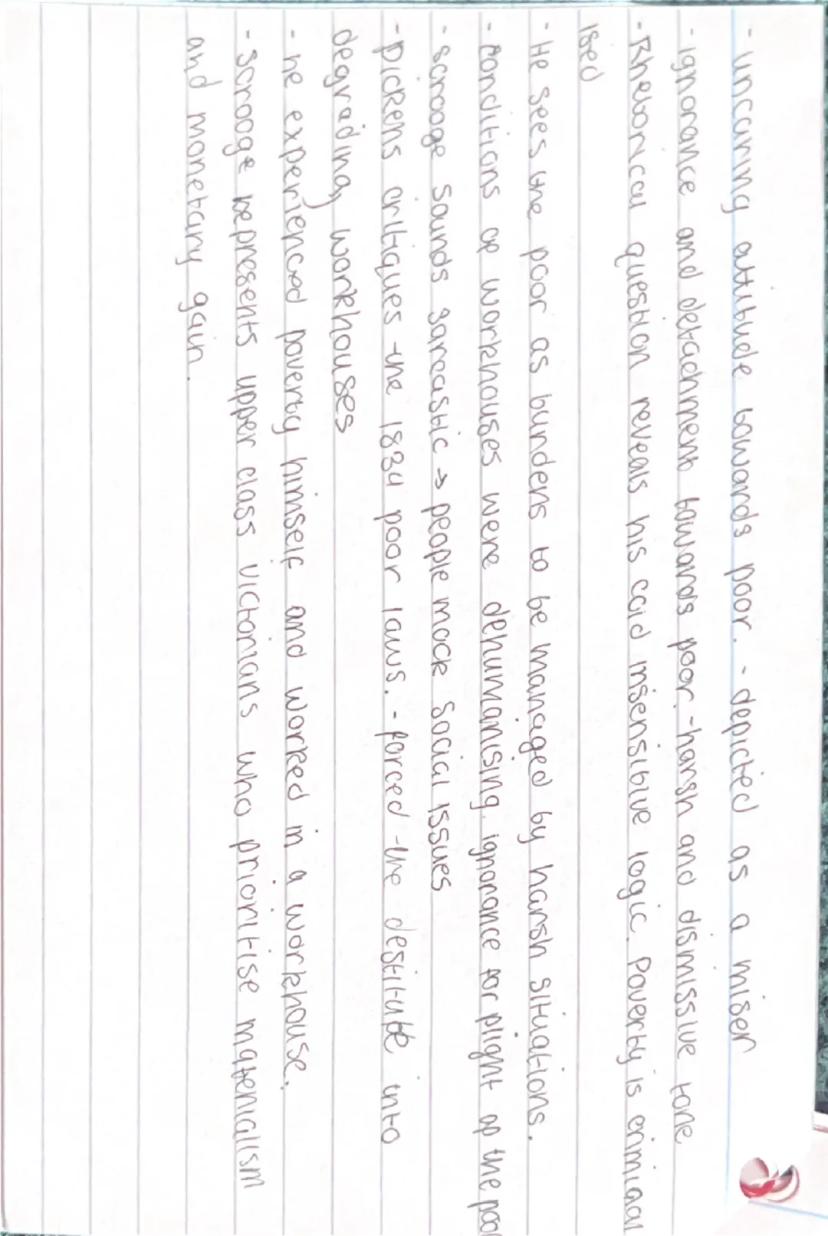 - uncaring attitude towards poor. - depicted as a miser
- ignorance and detachment towards poor. - harsh and dismissive tone
- Rhetorical question reveals his cold insensitive logic. Poverty is criminal
ised
- He sees the poor as burdens to be managed by harsh situations.
- conditions of workhouses were dehumanising. ignorance for plight of the poor
- scrooge sounds sarcastic → people mock social issues
- Dickens critiques the 1834 poor laws. - forced the destitute into
degrading workhouses
- he experienced poverty himself and worked in a workhouse.
- Scrooge represents upper class victorians who prioritise materialism
and monetary gain.